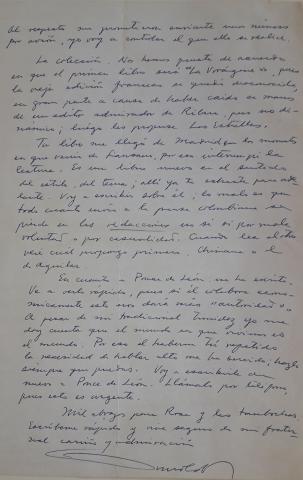 Al respecto me prometieron enviarte unos números
por avión, yo voy a controlar el que ello se realice.
La colección. Nos hemos puesto de acuerdo
en que el primer libro será "La Vorágine", pues
la vieja edición francesa se quedó desconocida,
en gran parte a causa de haber caído en manos
de un editor admirador de Rilke, pero no
luego les propuse Los
Tu libro me llegó de Madrid en los momentos
en que venía de por eso interrumpí la
lectura. Es un libro nuevo en el sentido
del estilo, del tema; allí ya te
Voy a escribir sobre él, lo malo es que
todo cuanto envío a la prensa colombiana se
pierde en las redacciones no sé si por mala
voluntad o por casualidad. Cuando lea el otro
veré cuál propongo primero. Chimano o el
de Aguilar
En cuanto a Ponce de León, no ha escrito.
Ve a verlo rápido, pues si él colabora
esto nos dará más "autoridad".
A pesar de mi tradicional timidez yo me
doy cuenta que el mundo en que vivimos es
el mundo. Por eso el haberme tú repetido
la necesidad de hablar alto me ha servido, hazlo
siempre que puedas. Voy a escribirle de
nuevo a Ponce de León. Llámalo por teléfono,
pues esto es urgente.
Mil abrazos para Rosa y los
Escríbeme rápido y vive seguro de mi frater-
nal cariño y admiración